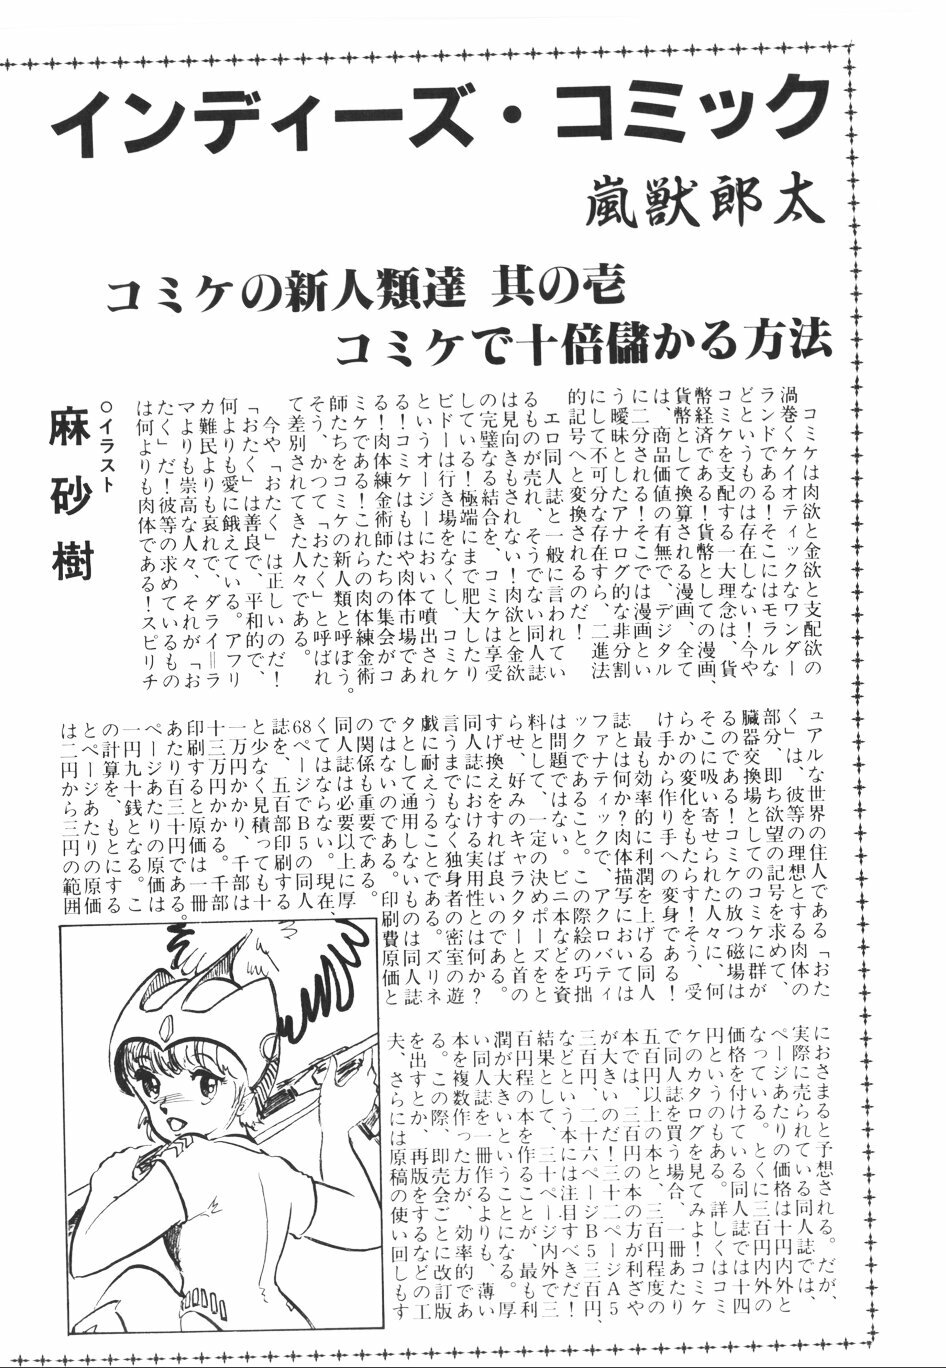 インディーズ・コミック
嵐獣郎太
コミケの新人類達 其の壱
コミケで十倍儲かる方法
コミケは肉欲と金欲と支配欲の
渦巻くケイオティックなワンダー
ランドである！そこにはモラルな
どというものは存在しない！今や
コミケを支配する一大理念は、貨
幣経済である！貨幣としての漫画、
貨幣として換算される漫画、全て
は、商品価値の有無で、デジタル
に二分される！そこでは漫画とい
う曖昧としたアナログ的な非分割
にして不可分な存在すら、二進法
的記号へと変換されるのだ！
エロ同人誌と一般に言われてい
るものが売れ、そうでない同人誌
は見向きもされない！肉欲と金欲
の完璧なる結合を、コミケは享受
している！極端にまで肥大したり
ビドーは行き場をなくし、コミケ
というオージーにおいて噴出され
る！コミケはもはや肉体市場であ
る！肉体練金術師たちの集会がコ
ミケである！これらの肉体練金術
師たちをコミケの新人類と呼ぼう。
そう、かつて「おたく」と呼ばれ
て差別されてきた人々である。
今や「おたく」は正しいのだ！
「おたく」は善良で、平和的で、
何よりも愛に餓えている。アフリ
カ難民よりも哀れで、ダライ＝ラ
マよりも崇高な人々、それが「お
たく」だ！彼等の求めているもの
は何よりも肉体である！スピリチ
○イラスト
麻砂樹
ュアルな世界の住人である「おた
く」は、彼等の理想とする肉体の
部分、即ち欲望の記号を求めて、
臓器交換場としてのコミケに群が
るのである！コミケの放つ磁場は
そこに吸い寄せられた人々に、何
らかの変化をもたらす！そう、受
け手から作り手への変身である！
最も効率的に利潤を上げる同人
誌とは何か？肉体描写においては
ファナティックで、アクロバティ
ックであること。この際絵の巧拙
は問題ではない。ビニ本などを資
料として、一定の決めポーズをと
らせ、好みのキャラクターと首の
すげ換えをすれば良いのである。
同人誌における実用性とは何か？
言うまでもなく独身者の密室の遊
戯に耐えうることである。ズリネ
タとして通用しないものは同人誌
ではないのである。印刷費原価と
の関係も重要である。
同人誌は必要以上に厚
くてはならない。現在、
68ページでB5の同人
誌を、五百部印刷する
と少なく見積っても十
一万円かかり、千部は
十三万円かかる。千部
印刷すると原価は一冊
あたり百三十円である。
ページあたりの原価は
一円九十銭となる。こ
の計算を、もとにする
とページあたりの原価
は二円から三円の範囲
におさまると予想される。だが、
実際に売られている同人誌では、
ページあたりの価格は十円内外と
なっている。とくに三百円内外の
価格を付けている同人誌では十四
円というのもある。詳しくはコミ
ケのカタログを見てみよ！コミケ
で同人誌を買う場合、一冊あたり
五百円以上の本と、三百円程度の
本では、三百円の本の方が利ざや
が大きいのだ！三十二ページA5
三百円、二十六ページB5三百円、
などという本には注目すべきだ！
結果として、三十ページ内外で三
百円程の本を作ることが、最も利
潤が大きいということになる。厚
い同人誌を一冊作るよりも、薄い
本を複数作った方が、効率的であ
る。この際、即売会ごとに改訂版
を出すとか、再版をするなどの工
夫、さらには原稿の使い回しもす